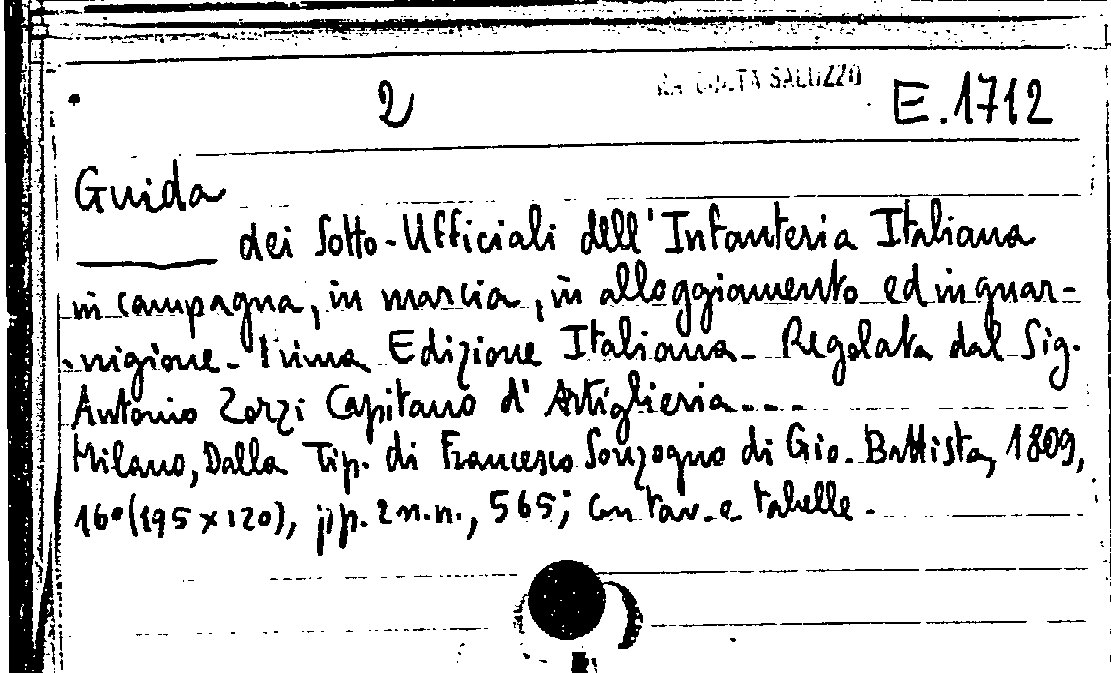 2 RACCOLTA SALUZZO E.1712
Guida
dei Sotto-Ufficiali dell'Infanteria Italiana
in campagna, in marcia, in alloggiamento ed in guar-
nigione. Prima Edizione Italiana. Regolata dal Sig.
Antonio Zorzi Capitano d'Artiglieria...
Milano, Dalla Tip. di Francesco Sonzogno di Gio. Battista, 1809,
16°(195x120), pp. 2 n.n., 565; con tav. e tabelle.